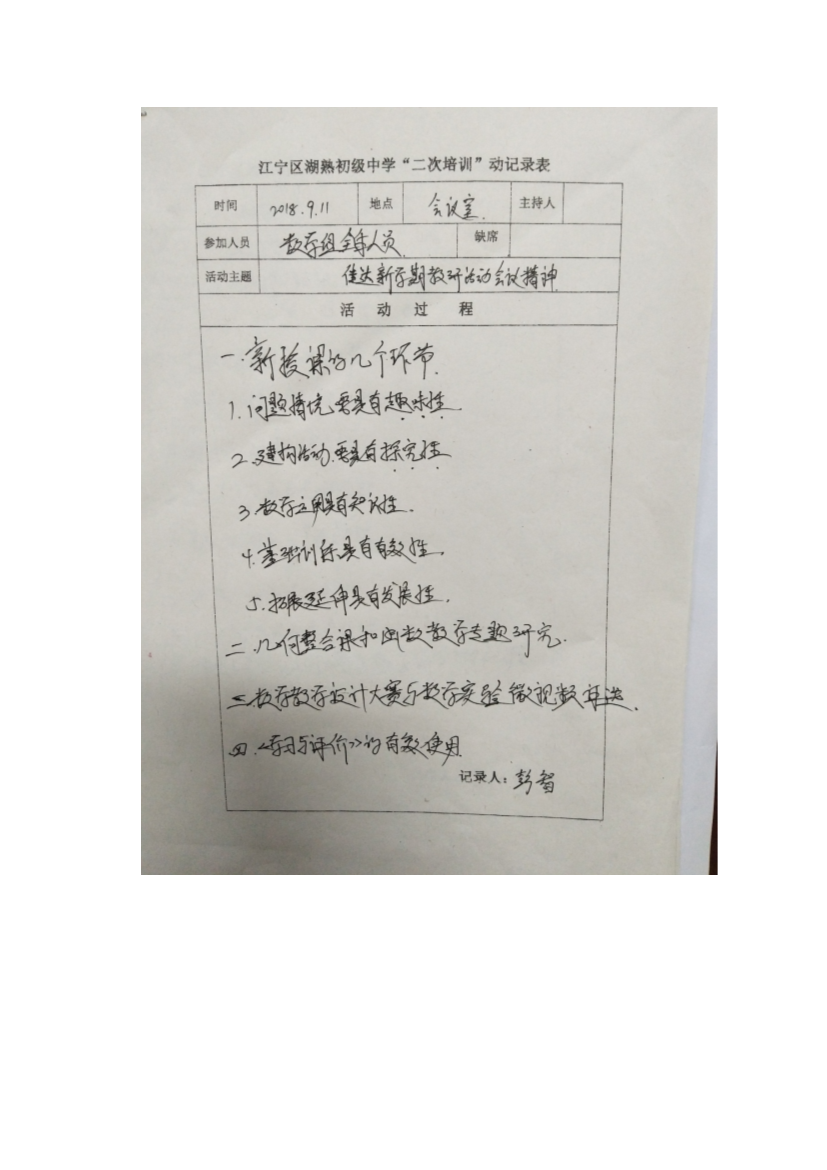 江宁区湖熟初级中学“二次培训”动记录表
时间 2018.9.11 地点 会议室. 主持人
参加人员 数学组全体人员 缺席
活动主题 传达新学期教研活动会议精神
活动过程
一.新授课的几个环节.
1.问题情境,要具有趣味性.
2.建构活动.要具有探究性
3.数学运用具有知识性.
4.基础训练具有有效性.
5.拓展延伸具有发展性.
二.几何整合课和函数数学专题研究.
三.数学教学设计大赛与数学实验微视频评选.
四.《学习与评价》的有效使用
记录人:彭智